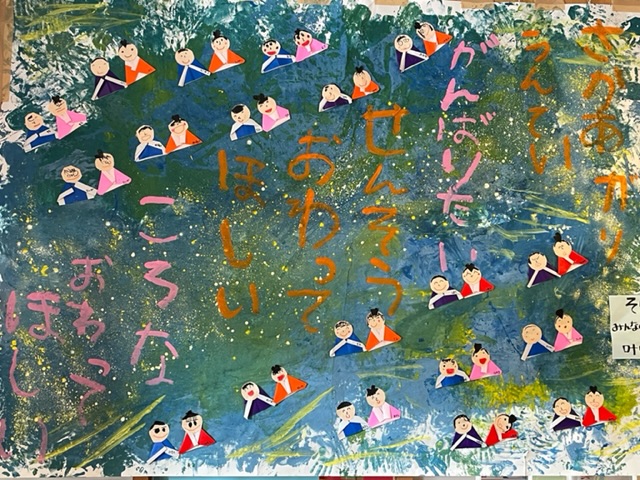 さかあがり
うんてい
がんばりたい
せんそう
おわって
ほしい
ころな
おわって
ほしい
そ
みんな
叶